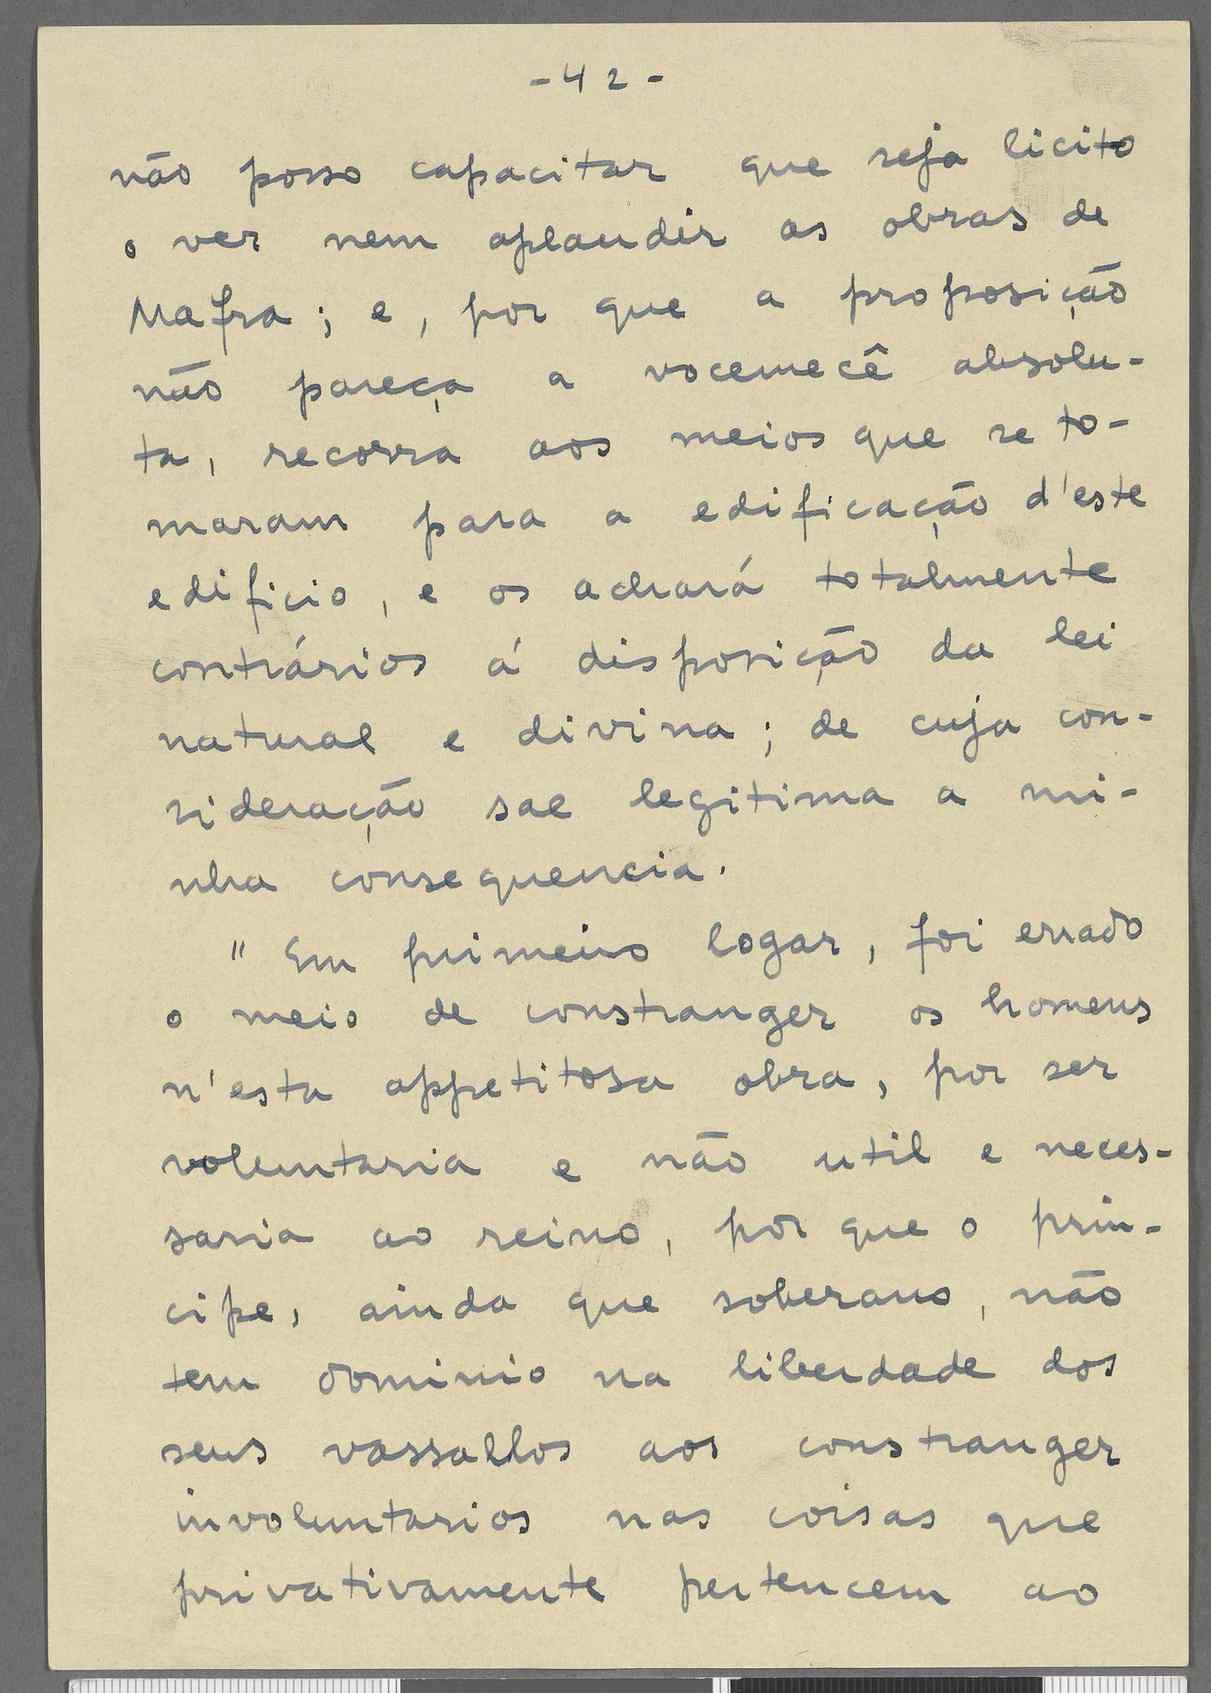 - 42 -
não posso capacitar que seja licito
o ver nem aplaudir as obras de
Mafra; e, por que a proposição
não pareça a vocemecê absolu-
ta, recorra aos meios que se to-
maram para a edificação d'este
edificio, e os achará totalmente
contrários á disposição da lei
natural e divina; de cuja con-
sideração sae legitima a mi-
nha consequencia.
" Em primeiro logar, foi errado
o meio de constranger os homens
n'esta appetitosa obra, por ser
voluntaria e não util e neces-
saria ao reino, por que o prin-
cipe, ainda que soberano, não
tem dominio na liberdade dos
seus vassallos aos constranger
involuntarios nas coisas que
privativamente pertencem ao